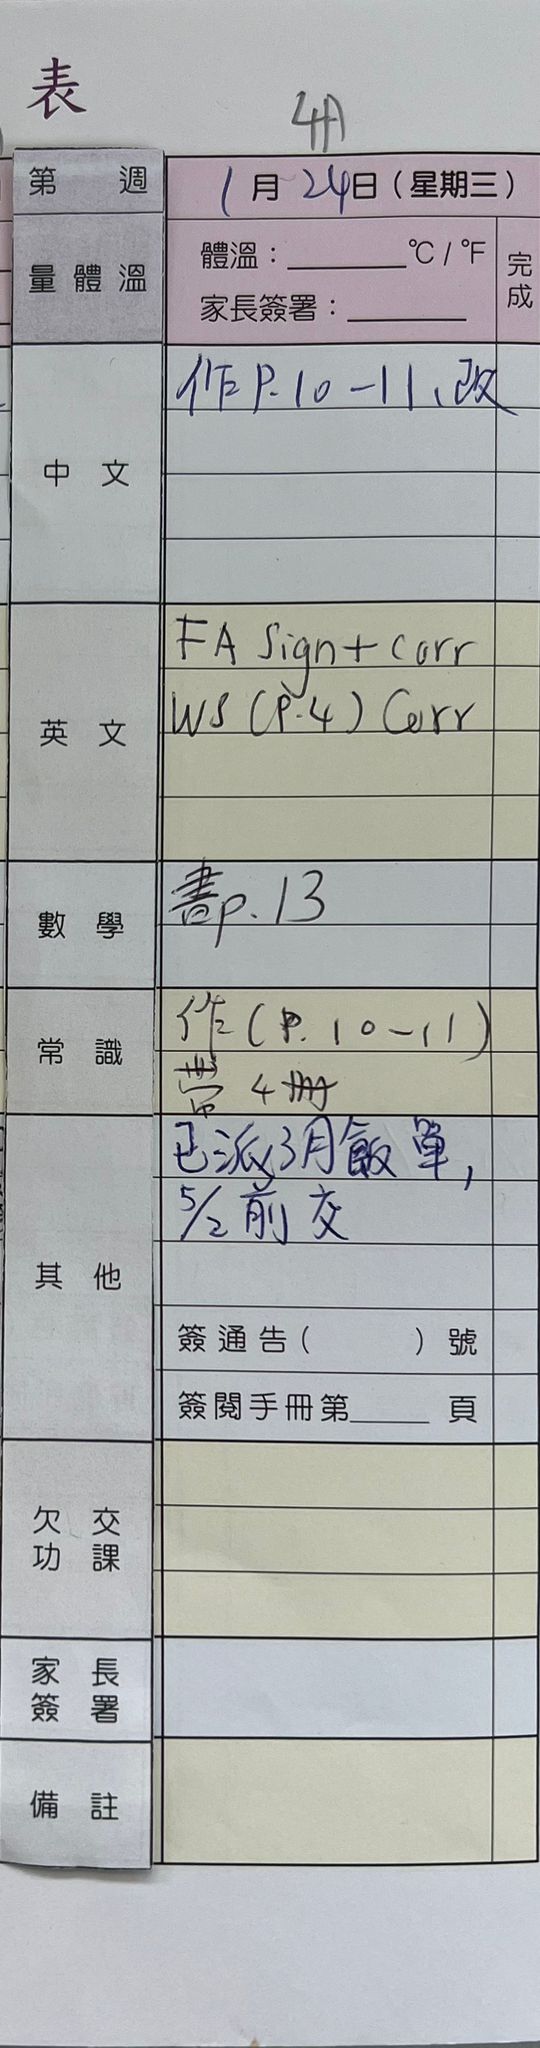 表
4A
第 週
1月24日(星期三)
量體溫
體溫：______°C / °F
家長簽署：______
完成
中文
作P.10-11、改
英文
FA Sign + Corr
WS (P.4) Corr
數學
書p.13
常識
作(P.10-11)
常4冊
其他
已派3月飯單,
5/2前交
簽通告( )號
簽閱手冊第____頁
欠交
功課
家長
簽署
備註